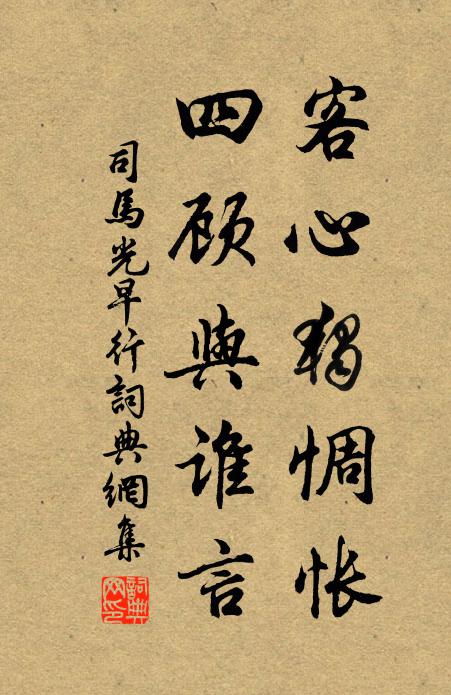 客心独惆怅
四顾與谁言
司馬光早行詞典網集
詞典网印